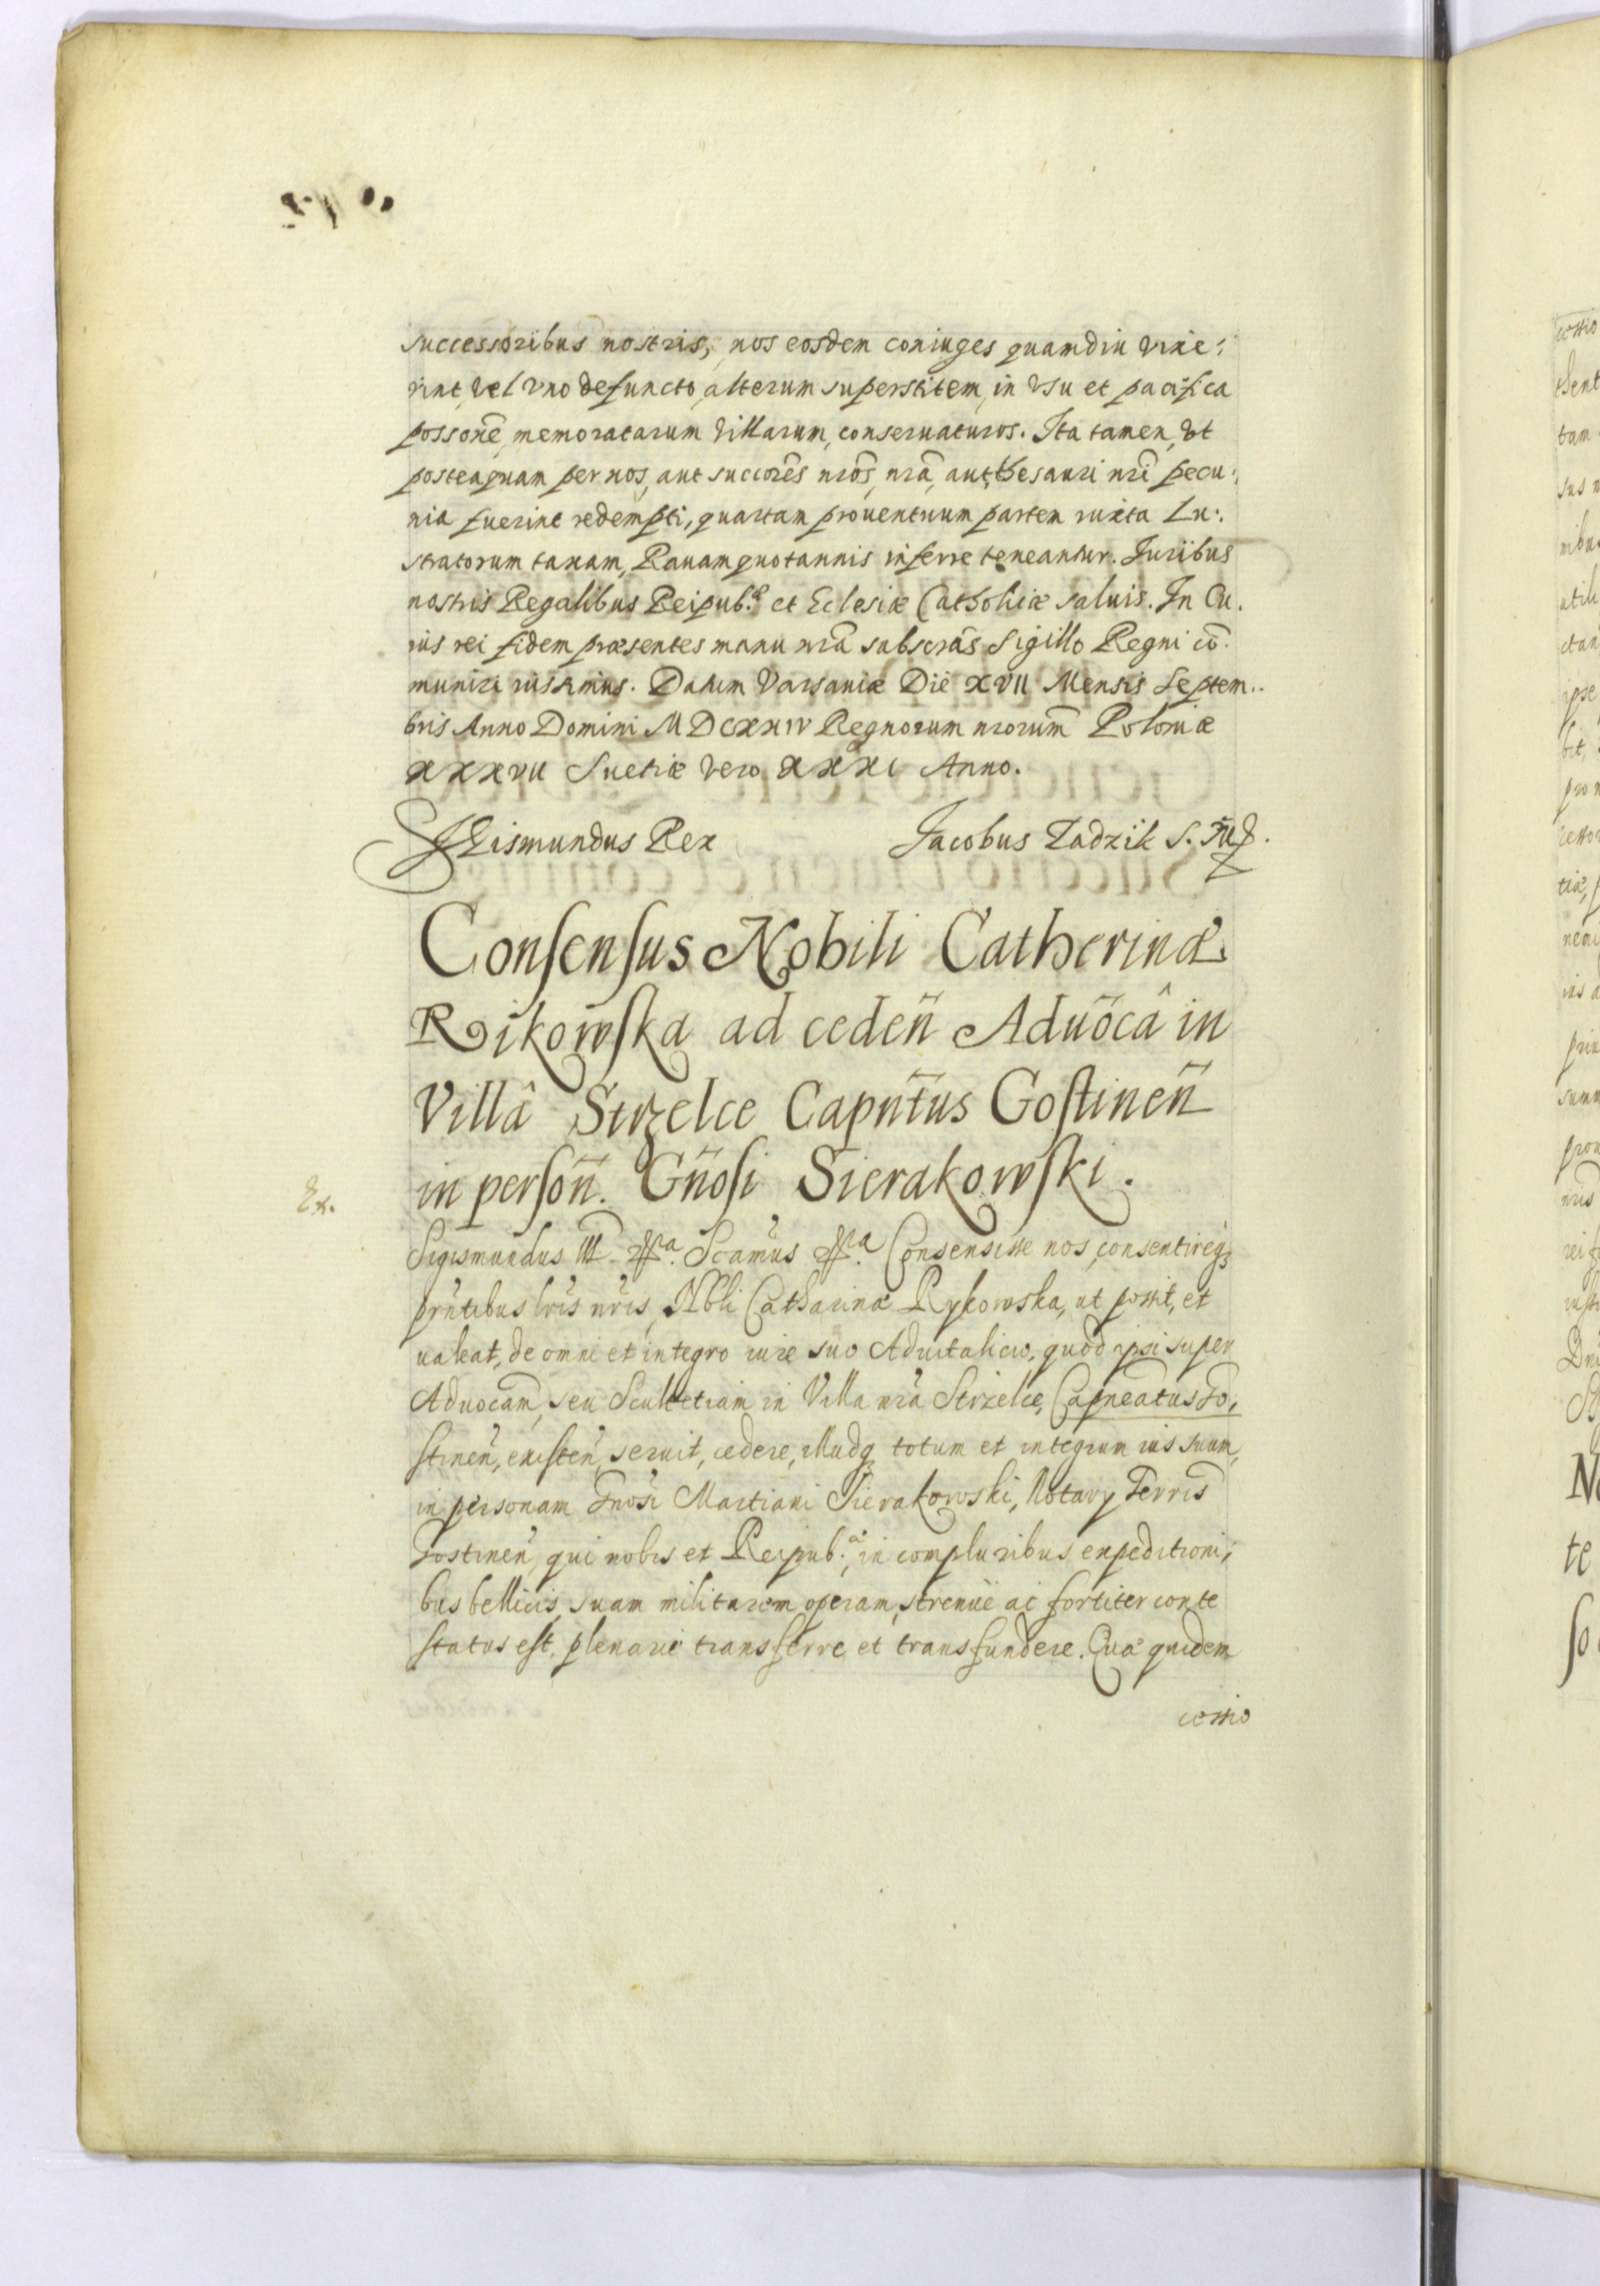 successoribus nostris, nos eosdem coniuges quamdiu vixe:
rint, vel vno defuncto, alterum superstitem, in vsu et pacifica
possone, memoratarum villarum, conseruaturos. Ita tamen, vt
posteaquam per nos, aut succores nros, nra, aut thesauri nri pecu:
nia fuerint redempti, quartam prouentuum partem iuxta Lu:
stratorum taxam, Rauam quotannis inferre teneantur. Iuribus
nostris Regalibus Reipub.æ et Eclesiæ Catholicæ saluis. In Cu.
ius rei fidem præsentes manu nra subscras Sigillo Regni co.
muniri iussimus. Datum Varsauiæ Die XVII Mensis Septem..
bris Anno Domini MDCXXIV Regnorum nrorum Poloniæ
XXXVII Suetiæ vero XXXI Anno.
Sigismundus Rex Jacobus Zadzik S.
Consensus Nobili Catherinæ
Rikowska ad ceden Aduoca in
Villâ Strzelce Capntus Gostinen
in person. Gnosi Sierakowski.
Ex.
Sigismundus III Scamus Consensisse nos, consentireq;
prntibus lris nris, Nbli Catharinæ Rykowska, ut possit, et
ualeat, de omni et integro iure suo Aduitalicio, quod ipsi super
Aduocam, seu Scultetiam in Villa nra Strzelce, Capneatus Go,
stinen, existen, seruit, cedere, illudq totum et integrum ius suum,
in personam Gnosi Martiani Sierakowski, Notary Terris
Gostinen, qui nobis et Reipub.æ, in compluribus expeditioni,
bus bellicis, suam militarem operam, strenuè ac fortiter conte
status est, plenarie transferre et transfundere. Quæ quidem
cessio